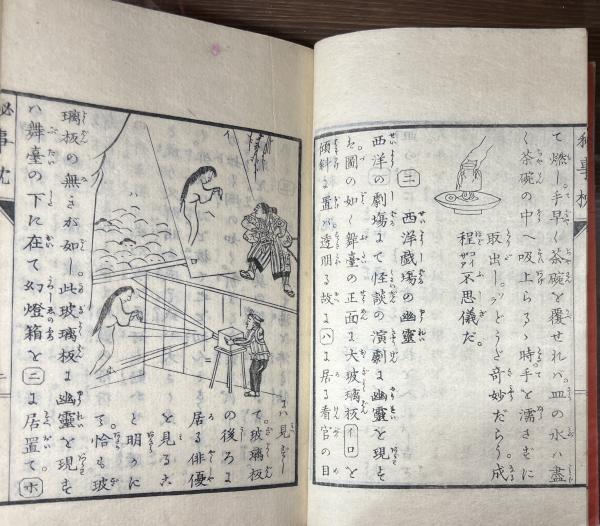 て燃し。手早く茶碗を覆せれバ。皿の水ハ盡
く茶碗の中へ吸上らるゝ時。手を濡さずに
取出し。ﾅﾝとどうだ奇妙だらう。成
程不思儀だ。
三 西洋戯場の幽靈
西洋の劇場まて怪談の演劇ま幽靈を現す
圖の如く舞臺の正面ま大玻璃板イロを
傾斜ま置バ。透明る故まハま居る看官の目
まハ見へずして。玻璃板
の後ろま
居る俳優
を見るハ
明かに
る恰も玻
璃板の無きが如し。此玻璃板ま幽靈を現す
ハ舞臺の下に在て幻燈箱をニま居置て。ホ
イ
ロ